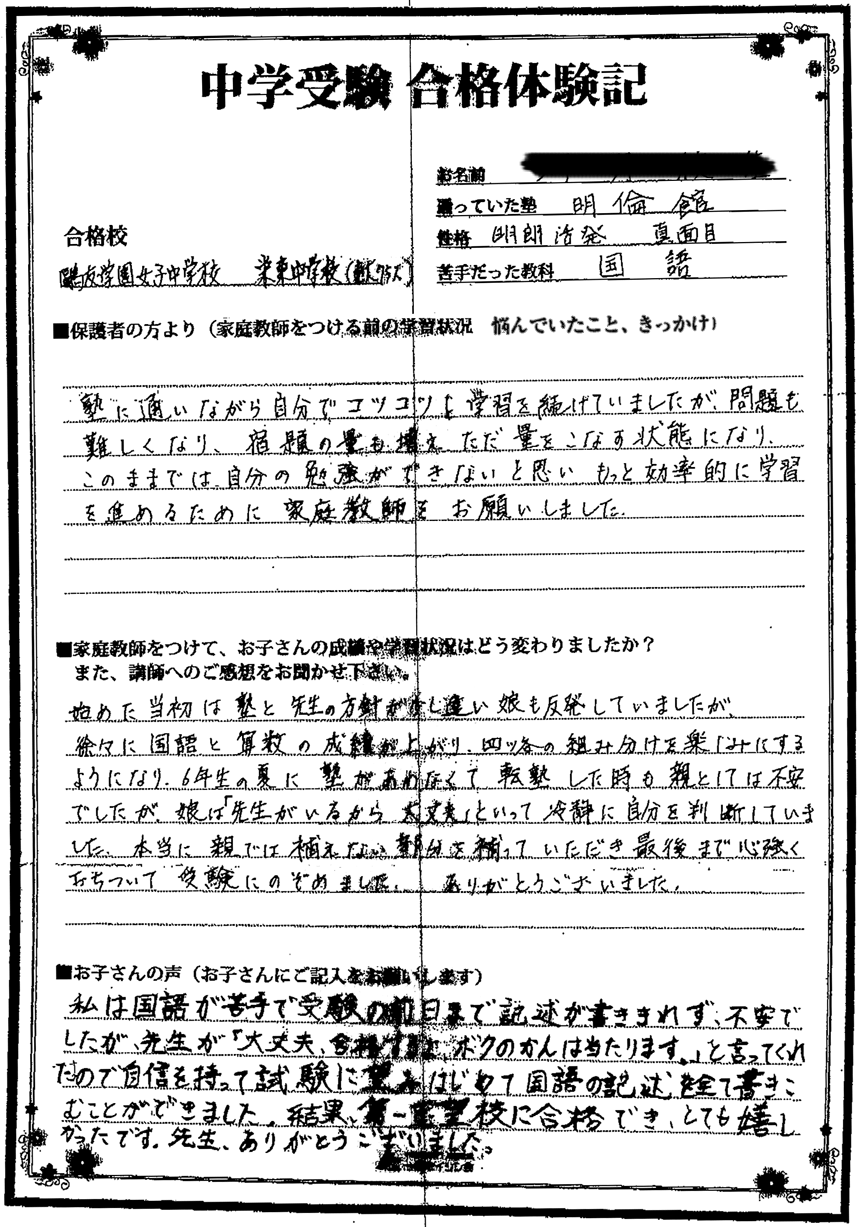 中学受験 合格体験記
お名前
通っていた塾 明倫館
性格 明朗活発 真面目
合格校
鷗友学園女子中学校 栄東中学校(東大クラス)
苦手だった教科 国語
■保護者の方より(家庭教師をつける前の学習状況 悩んでいたこと、きっかけ)
塾に通いながら自分でコツコツと学習を続けていましたが、問題も
難しくなり、宿題の量も増え ただ量をこなす状態になり、
このままでは自分の勉強ができないと思い もっと効率的に学習
を進めるために 家庭教師を お願いしました。
■家庭教師をつけて、お子さんの成績や学習状況はどう変わりましたか?
また、講師へのご感想をお聞かせ下さい。
始めた当初は塾と先生の方針が少し違い娘も反発していましたが、
徐々に国語と算数の成績が上がり、四ッ谷の組み分けを楽しみにする
ようになり、6年生の夏に 塾があわなくて 転塾した時も親としては不安
でしたが、娘は「先生がいるから大丈夫」といって冷静に自分を判断していま
した。本当に親では補えない部分を補っていただき最後まで心強く
おちついて受験にのぞめました。 ありがとうございました。
■お子さんの声(お子さんにご記入をお願いします)
私は国語が苦手で受験の前日まで記述が書ききれず、不安で
したが、先生が「大丈夫、合格するよ、ボクのかんは当たります。」と言ってくれ
たので自信を持って試験に望み はじめて国語の記述を全て書きこ
むことができました。結果、第一志望校に合格でき、とても嬉し
かったです。先生、ありがとうございました。